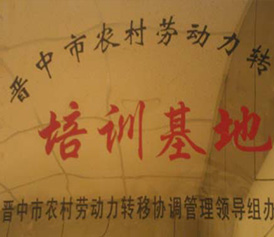 晋中市农村劳动力转
培训基地
晋中市农村劳动力转移协调管理领导组办